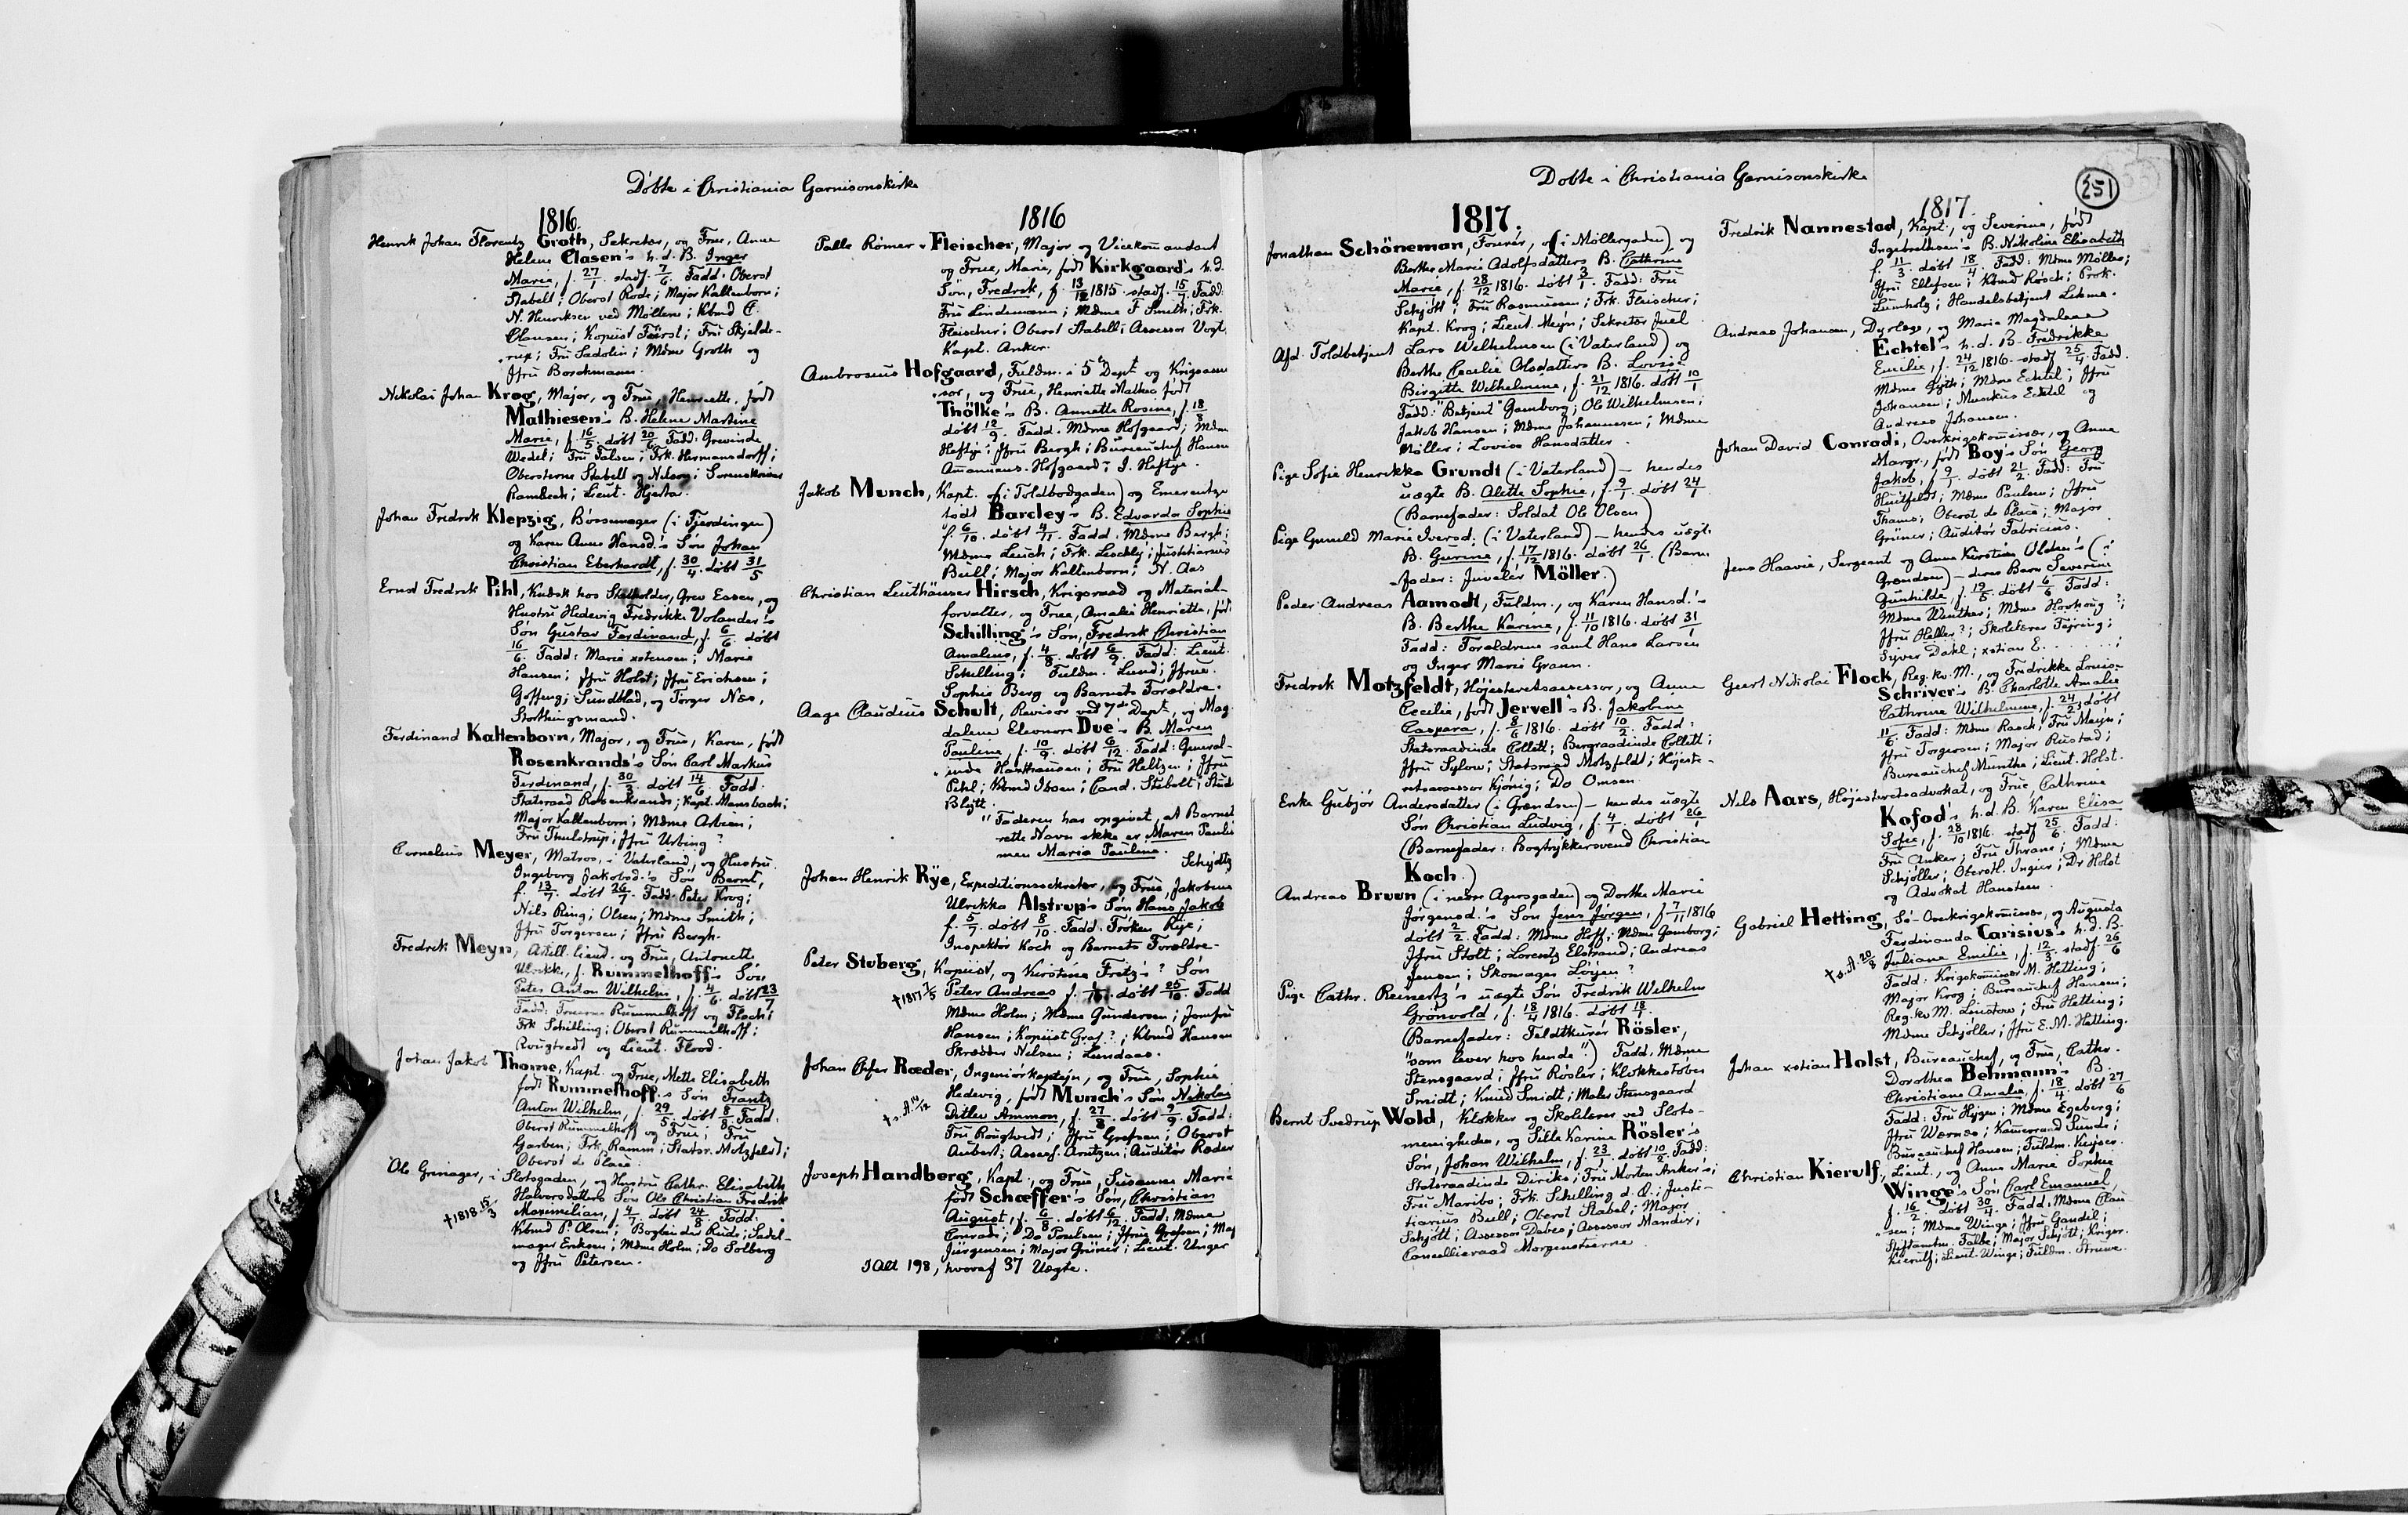 Döbte i Christiania Garnisonskirke
1816.
Henrik Johan Florentz Groth, Sekretær, og Frue, Anne
Helene Clasen's h. d. B. Inger
Marie, f. 27/1. stadf. 7/6. Fadd. Oberst
Stabell; Oberst Rode; Major Kaltenborn;
N. Henriksen ved Möllerne; Kbmd C.
Clausen; Kopiist Fürst; Fru Skjelde-
rup; Fru Sadolin; Mdme Groth og
Jfru Borckmann.
Nikolai Johan Krog, Major, og Frue, Henriette, født
Mathiesen's B. Helene Martine
Marie, f. 16/5. döbt 20/6. Fadd: Grevinde
Wedel; Fru Falsen; Frk. Hermansdorff;
Obersterne Stabell og ; Sorenskriver
Rambech; Lieut. Hjorta.
Johan Fredrik Klepzig, Börsemager (i Fjerdingen)
og Karen Anne Hansd.'s Sön Johan
Christian Eberhardt, f. 30/4. döbt 31/5
Ernst Fredrik Pihl, Kudsk hos Statholder, Grev Essen, og
Hustru Hedevig Fredrikke Volander's
Sön Gustav Ferdinand, f. 6/6. döbt
16/6. Fadd: Marie xstensen; Marie
Hansen; Jfru Holst; Jfru Erichsen;
Goffeng; Sundblad, og Torger Næs,
Storthingsmand.
Ferdinand Kaltenborn, Major, og Frue, Karen, født
Rosenkrands's Sön Carl Markus
Ferdinand, f. 30/3. döbt 14/6. Fadd.
Statsraad Rosenkrands; Kapt. Mansbach;
Major Kaltenborn; Mdme Arbien;
Fru Thulstrup; Jfru Urbing?
Cornelius Meyer, Matros, i Vaterland, og Hustru
Ingeborg Jakobsd.'s Sön Bernt,
f. 13/7. döbt 26/7. Fadd. Peter Krog;
Nils Ring; Olsen; Mdme Smith;
Jfru Torgersen; Jfru Bergh.
Fredrik Meyn, Artill. lieut. og Frue, Antonette
Ulrikke, f. Rummelhoff's Sön
Peter Anton Wilhelm, f. 4/6. döbt 23/7
Fadd: Fruerne Rummelhoff og Floch;
Frk Schilling; Oberst Rummelhoff;
Rougtvedt og Lieut. Flood.
Johan Jakob Thome, Kapt. og Frue, Mette Elisabeth
født Rummelhoff's Sön Frantz
Anton Wilhelm, f. 29/5. döbt 8/8. Fadd:
Oberst Rummelhoff og Frue; Fru
Garben; Frk. Ramm; Statsr. Motzfeldt;
Oberst de Place.
Ole Grinager, i Slotsgaden, og Hustru Cathr. Elisabeth
Halvorsdatters Sön Ole Christian Fredrik
†1818 15/3 Maximilian, f. 4/7. döbt 24/8. Fadd.
Kbmd P. Olsen; Bogbinder Rude; Sadel-
mager Eriksen; Mdme Holm; Do Solberg
og Jfru Petersen.
1816
Palle Römer v Fleischer, Major og Vicekommandant
og Frue, Marie, født Kirkgaard's h. d.
Sön, Fredrik, f. 13/12 1815. stadf. 15/7. Fadd.
Fru Lindemann; Mdme F Smith; Frk.
Fleischer; Oberst Stabell; Assessor Vogt,
Kapt. Anker.
Ambrosius Hofgaard, Fuldm. i 5te Dept og Krigsasses-
sor, og Frue, Henriette Mathea født
Thölke's B. Annette Rosine, f. 18/8
döbt 12/9. Fadd. Mdme Hofgaard; Mdme
Heftye; Jfru Bergh; Bureauchef Hansen
Amanuens. Hofgaard; J. Heftye.
Jakob Munch, Kapt. (i Toldbodgaden) og Emerentze
født Barcley's B. Edvarda Sophie
f. 6/10. döbt 4/11. Fadd. Mdme Bergh;
Mdme Leuch; Frk. Leschly; Justitiarius
Bull; Major Kaltenborn; N. Aas
Christian Leuthäuser Hirsch, Krigsraad og Material-
forvalter, og Frue, Amalie Henriette, født
Schilling's Sön, Fredrik Christian
Amalius, f. 4/8. döbt 6/9. Fadd: Lieut.
Schilling; Fuldm. Lund; Jfrue.
Sophie Berg og Barnets Forældre.
Aage Claudius Schult, Revisor ved 7de Dept, og Mag-
dalene Eleonore Due's B. Maren
Pauline, f. 10/9. döbt 6/12. Fadd: General-
inde Haxthausen; Fru Heltzen; Jfru
Pihl; Kbmd Ibsen; Cand. Stabell; Stud
Blytt.
"Faderen har opgivet, at Barnet
rette Navn ikke er Maren Pauline
men Maria Pauline.
Johan Henrik Rÿe, Expeditionssekretær, og Frue, Jakobine Schydtz
Ulrikke Alstrup's Sön Hans Jakob
f. 5/7. döbt 8/10. Fadd. Fröken Rye;
Inspektör Koch og Barnets Forældre.
Peter Stuberg, Kopiist, og Kirstine Fritz's? Sön
†1817 7/5 Peter Andreas f. döbt 25/10. Fadd
Mdme Holm; Mdme Gundersen; Jomfru
Hansen; Kopiist Graf?; Kbmd Hansen
Skrædder Nelsen; Lundaas.
Johan Chfer Ræder, Ingeniörkaptejn, og Frue, Sophie
Hedevig, født Munch's Sön Nikolai
†s. A. 14/12 Ditlev Ammon, f. 27/8. döbt 9/9. Fadd:
Fru Rougtvedt; Jfru Grefsen; Oberst
Aubert; Assess. Arntzen; Auditör Ræder
Joseph Handberg, Kapt., og Frue, Susanne Marie
født Schæffer's Sön, Christian
August, f. 6/8. döbt 6/12. Fadd. Mdme
Conradi; Do Poulsen; Jfrue Grefsen; Maj
Jürgensen; Major Grüner; Lieut. Unger
I Alt 198, hvoraf 37 Uægte.
Döbte i Christiania Garnisonskirke
251
1817.
Jonathan Schöneman, Fourér, (i Möllergaden) og
Berthe Marie Adolfsdatters B. Cathrine
Marie, f. 28/12 1816. döbt 3/1. Fadd: Fru
Schjött; Fru Rasmussen; Frk. Fleischer;
Kapt. Krog; Lieut. Meyn; Sekretær Juel
Afd. Toldbetjent Lars Wilhelmsen (i Vaterland) og
Berthe Cecilie Olsdatters B. Lovise
Birgitte Wilhelmine, f. 21/12 1816. döbt 10/1
Fadd: "Betjent" Gamborg; Ole Wilhelmsen;
Jakob Hansen; Mdme Johannessen; Mdme
Möller; Lovise Hansdatter.
Pige Sofie Henrikke Grundt (i Vaterland) – hendes
uægte B. Alette Sophie, f. 9/1. döbt 24/1
(Barnefader: Soldat Ole Olsen)
Pige Gunild Marie Iversd. (i Vaterland) – hendes uægte
B. Gurine, f. 17/12 1816. döbt 26/1. (Barne-
fader: Juvelér Möller.)
Peder Andreas Aamodt, Fuldm., og Karen Hansd.'s
B. Berthe Karine, f. 11/10 1816. döbt 31/1
Fadd: Forældrene samt Hans Larsen
og Inger Marie Grann.
Fredrik Motzfeldt, Höjesteretsassessor, og Anna
Cecilie, født Jervell's B. Jakobine
Caspara, f. 8/6 1816. döbt 10/2. Fadd:
Statsraadinde Collett; Bergraadinde Collett;
Jfru Sylow; Statsraad Motzfeldt; Höjeste-
retsassessor Kjönig; Do Omsen.
Enke Gubjör Andersdatter (i Grændsen) – hendes uægte
Sön Christian Ludvig, f. 4/1. döbt 26/1
(Barnefader: Bogtrykkersvend Christian
Koch.)
Andreas Bruun (i nedre Agersgaden) og Dorthe Marie
Jörgensd.'s Sön Jens Jörgen, f. 7/11 1816
döbt 2/2. Fadd: Mdme Hoff; Mdme Gamborg;
Jfru Stolt; Lorentz Elstrand; Andreas
Jensen; Skomager Lörjen?
Pige Cathr. Reinertz's uægte Sön Fredrik Wilhelm
Grönvold, f. 18/4 1816. döbt 18/1.
(Barnefader: Feldtkurér Rösler,
"som lever hos hende".) Fadd: Mdme
Stensgaard; Jfru Rösler; Klokkestöber
Smidt; Knud Smidt; Maler Stensgaard
Bernt Svedrup Wold, Klokker og Skolelærer ved Slots-
menigheden, og Sille Karine Rösler's
Sön, Johan Wilhelm, f. 23/1. döbt 10/2. Fadd:
Statsraadinde Diriks; Fru Morten Anker's;
Fru Maribo; Frk. Schilling d. Æ.; Justi-
tiarius Bull; Oberst Stabel; Major
Schjött; Assessor Debes; Assessor Mandix;
Cancelliraad Morgenstierne
1817.
Fredrik Nannestad, Kapt., og Severine, født
Ingebrethsen's B. Nikoline Elisabeth
f. 11/3. döbt 18/4. Fadd: Mdme Möller;
Jfru Ellefsen; Kbmd Rösch; Prok.
Lumholz; Handelsbetjent Lekme.
Andreas Johansen, Dyrlæge, og Marie Magdalene
Echtel's h. d. B. Fredrikke
Emilie, f. 24/12 1816. stadf. 25/4. Fadd.
Mdme Gyth; Mdme Echtel; Jfru
Johansen; Musikus Echtel og
Andreas Johansen.
Johan David Conradi, Overkrigskommissær, og Anne
Margr., født Boy's Sön Georg
Jakob, f. 9/1. döbt 21/2. Fadd: Fru
Huitfeldt; Mdme Paulsen; Jfru
Thams; Oberst de Place; Major
Grüner; Auditör Fabricius.
Jens Haavie, Sergeant og Anne Kirstine Olden's (i
Grændsen) – deres Barn Severine
Gunhilde, f. 19/5. döbt 6/6. Fadd:
Mdme Winther; Mdme Horhoug?;
Jfru Heller?; Skolelærer Fejring;
Syver Dahl; xstian E.........;
Geert Nikolai Flock, Reg. kv. M., og Fredrikke Louise
Schriver's B. Charlotte Amalie
Cathrine Wilhelmine, f. 24/2. döbt
11/6. Fadd: Mdme Rasch; Fru Meyn;
Jfru Torgersen; Major Rustad;
Bureauchef Munthe; Lieut. Holst.
Nils Aars, Höjesteretsadvokat, og Frue, Cathrine
Kofod's h. d. B. Karen Elisa
Sofie, f. 28/10 1816. stadf. 25/6. Fadd:
Fru Anker; Fru Thrane; Mdme
Schjöller; Oberstl. Ingier; Dr Holst
og Advokat Hansteen.
Gabriel Hetting, Sö-Overkrigskommissær, og Augusta
Ferdinanda Carisius's h. d. B.
†s. A. 20/8 Juliane Emilie, f. 12/3. stadf. 26/6
Fadd. Krigskommissær M. Hetting;
Major Krog; Bureauchef Hansen;
Reg. kv M. Linstow; Fru Hetting;
Mdme Schjöller; Jfru E. M. Hetting.
Johan xstian Holst, Bureauchef, og Frue, Cathr.
Dorothea Behmann's B.
Christiane Amalie, f. 18/4. döbt 27/6
Fadd: Fru Heÿgen; Mdme Egeberg;
Jfru Wærnes; Kammerraad Sunde;
Bureauchef Hansen; Fuldm. Keyser.
Christian Kierulf, Lieut., og Anne Marie Sophie
Winge's Sön Carl Emanuel,
f. 16/2. döbt 30/4. Fadd. Mdme Clau-
sen; Mdme Winge; Jfru Gaudil;
Stiftamtm. Falbe; Major Schjött; Kriger.
Kierulf; Lieut. Winge; Fuldm. Struwe.